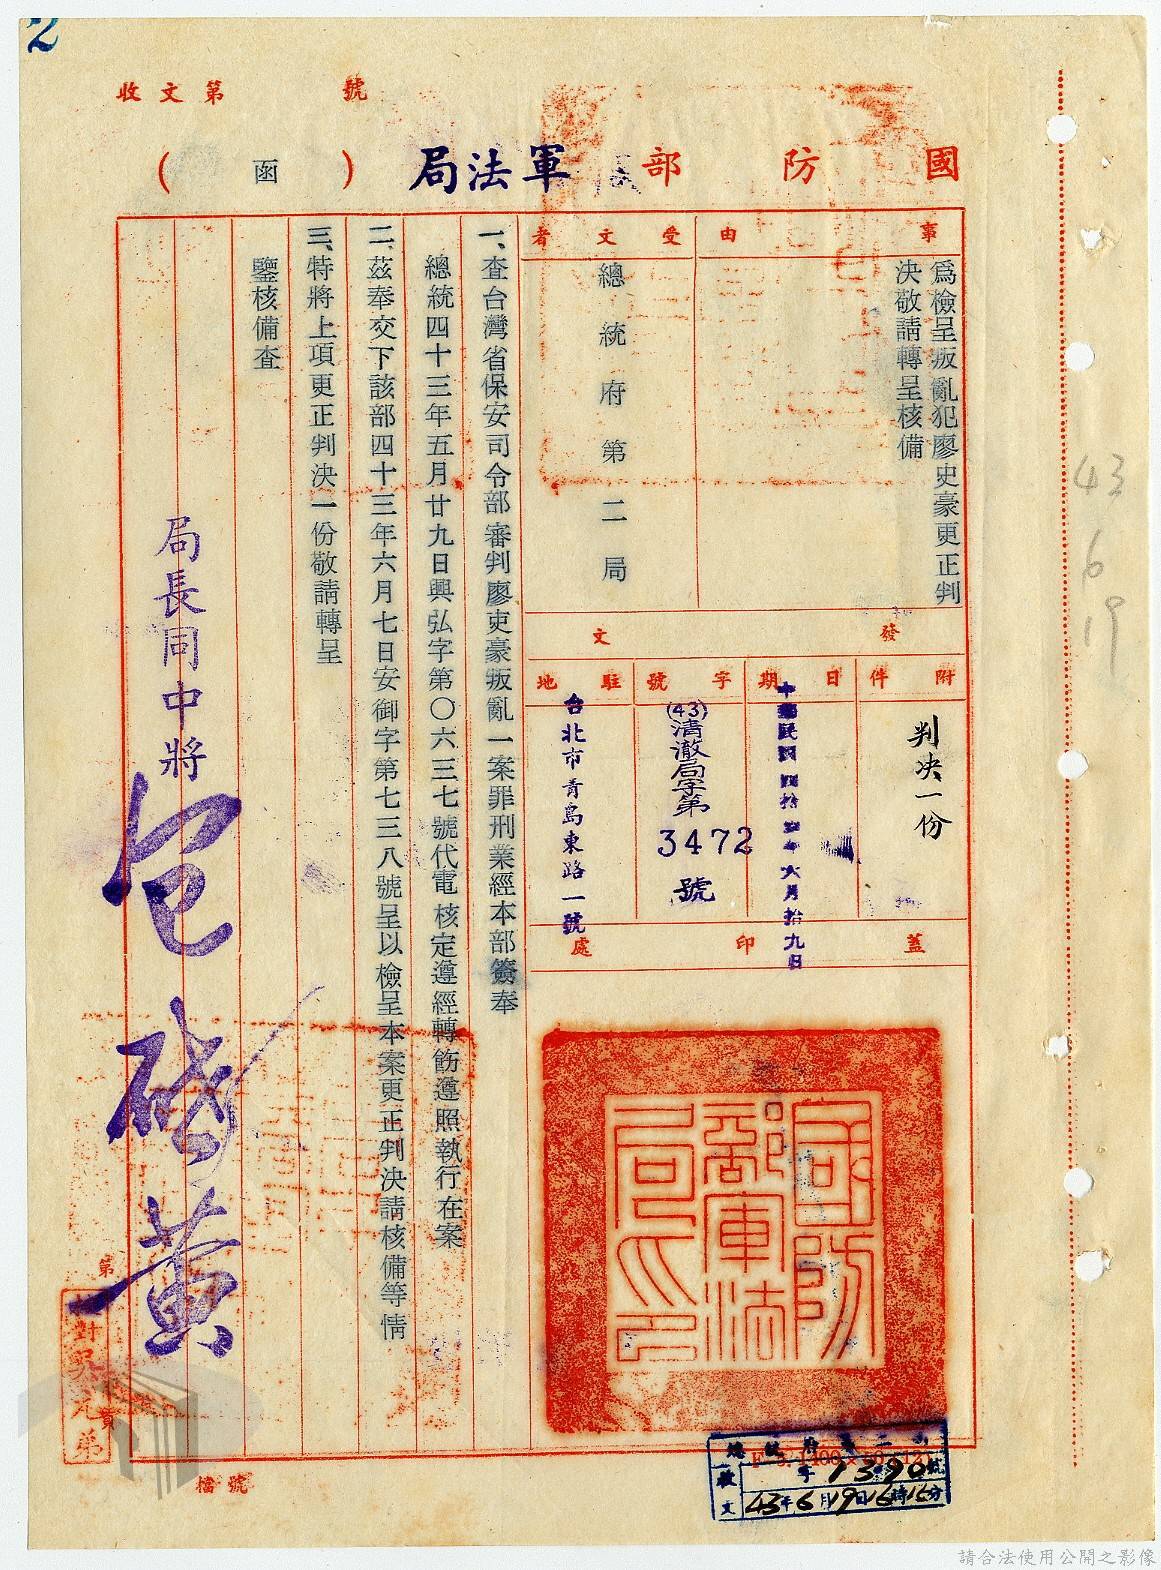 2
收文第 號
國防部軍法局(函)
事由
為檢呈叛亂犯廖史豪更正判
決敬請轉呈核備
受文者
總統府第二局
發文
附件
判決一份
日期
中華民國四拾叁年六月拾九日
字號
(43)清澈局字第3472號
駐地
台北市青島東路一號
蓋印處
國防部軍法局印
一、查台灣省保安司令部審判廖史豪叛亂一案罪刑業經本部簽奉
總統四十三年五月廿九日興弘字第〇六三七號代電核定遵經轉飭遵照執行在案
二、茲奉交下該部四十三年六月七日安御字第七三八號呈以檢呈本案更正判決請核備等情
三、特將上項更正判決一份敬請轉呈
鑒核備查
局長同中將包啟黃
第 頁
校對吳元弟
檔號
總統府第二局
收文 字1390號
43年6月19日16時16分
43
6
19
請合法使用公開之影像